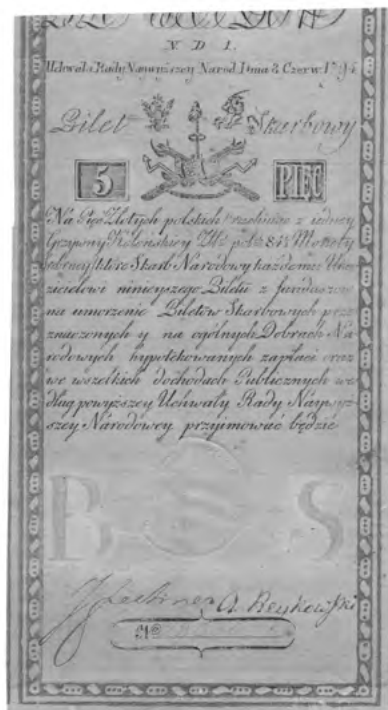 N. D 1.
Uchwała Rady Naywyższey Narod. Dnia 8 Czerw. 1794
Bilet Skarbowy
5 PIĘC
Na Pięć Złotych polskich rachuiąc z iedney
Grzywny Kolońskiey Złt. pol. 84½ Monety
srebrney, które Skarb Narodowy każdemu
cicielowi ninieyszego Biletu z funduszow
na umorzenie Biletów Skarbowych prze-
znaczonych y na ogólnych Dobrach Na
rodowych hypotekowanych zapłaci oraz
we wszelkich dochodach Publicznych we
dług powyższey Uchwały Rady Naywyż
szey Narodowey przyimować będzie
B S
A Reykowski
No